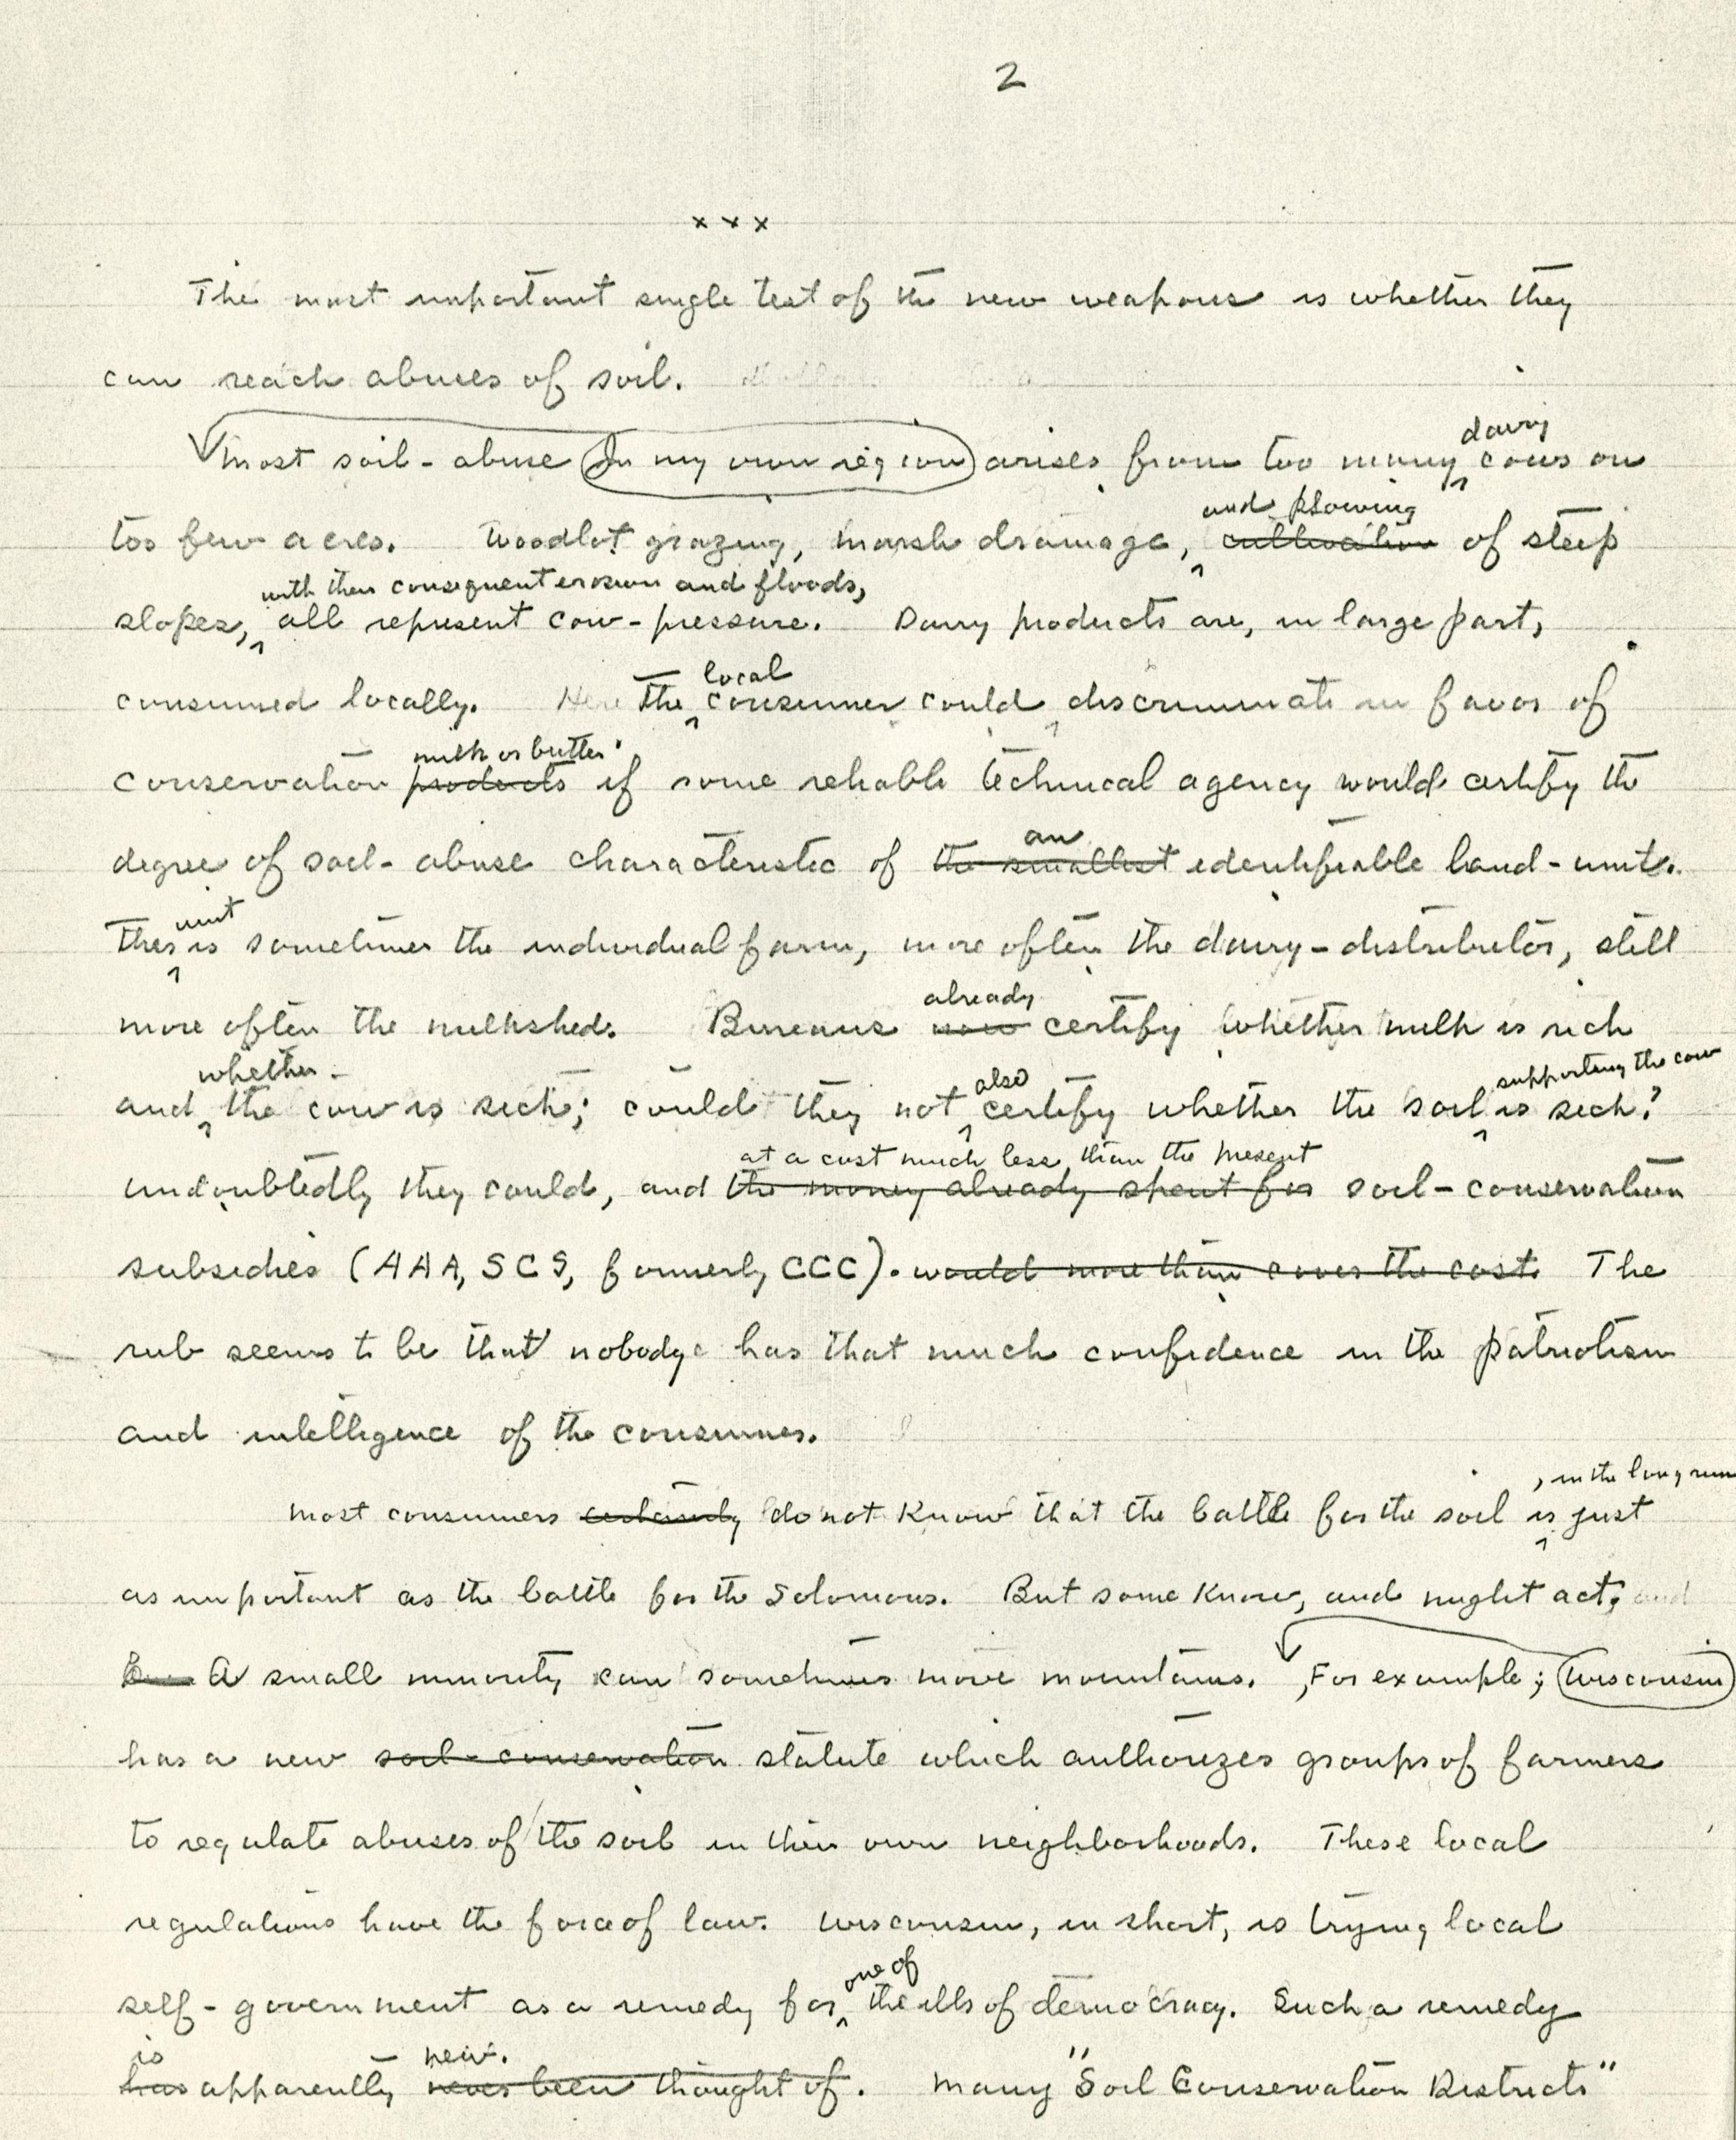 2
x x x
The most important single test of the new weapons is whether they
can reach abuses of soil.
dairy
Most soil-abuse In my own region arises from too many cows on
and plowing
too few acres. Woodlot grazing, marsh drainage, cultivation of steep
with their consequent erosion and floods,
slopes, all represent cow-pressure. Dairy products are, in large part,
local
consumed locally. Here The consumer could discriminate in favor of
milk or butter
conservation products if some reliable technical agency would certify the
an
degree of soil-abuse characteristic of the smallest identifiable land-unit.
unit
This is sometimes the individual farm, more often the dairy-distributor, still
already
more often the milkshed. Bureaus now certify whether milk is rich
whether also supporting the cow
and the cow is sick; could they not certify whether the soil is sick?
at a cost much less than the present
undoubtedly they could, and the money already spent for soil-conservation
subsidies (AAA, SCS, formerly CCC). would more than cover the cost. The
rub seems to be that nobody has that much confidence in the patriotism
and intelligence of the consumer.
, in the long run
Most consumers certainly do not know that the battle for the soil is just
as important as the battle for the Solomons. But some know, and might act; and
A small minority can sometimes move mountains. For example; Wisconsin
has a new soil-conservation statute which authorizes groups of farmers
to regulate abuses of the soil in their own neighborhoods. These local
regulations have the force of law. Wisconsin, in short, is trying local
one of
self-government as a remedy for the ills of democracy. Such a remedy
is new.
has apparently never been thought of. Many "Soil Conservation Districts"